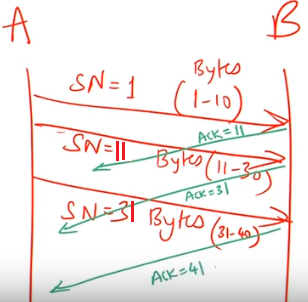 A B
SN=1 Bytes (1-10)
Ack=11
SN=11 Bytes (11-30)
Ack=31
SN=31 Bytes (31-40)
Ack=41